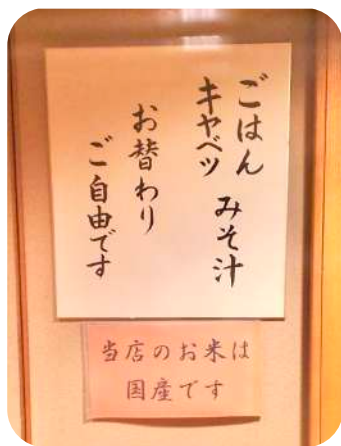 ごはん
キャベツ　みそ汁
お替わり
ご自由です
当店のお米は
国産です